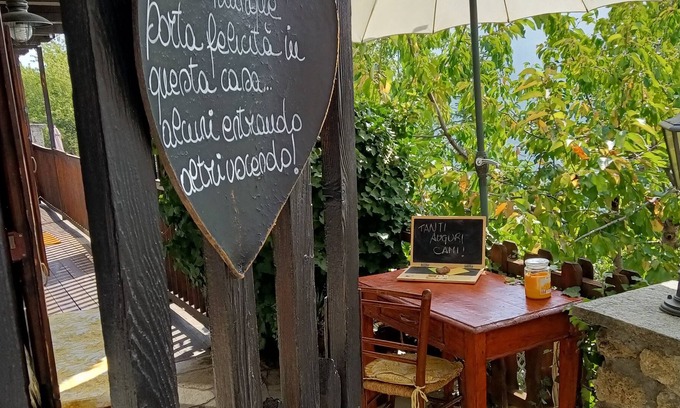 porta felicità in
questa casa...
alcuni entrando
altri uscendo!
TANTI
AUGURI
CAMI!